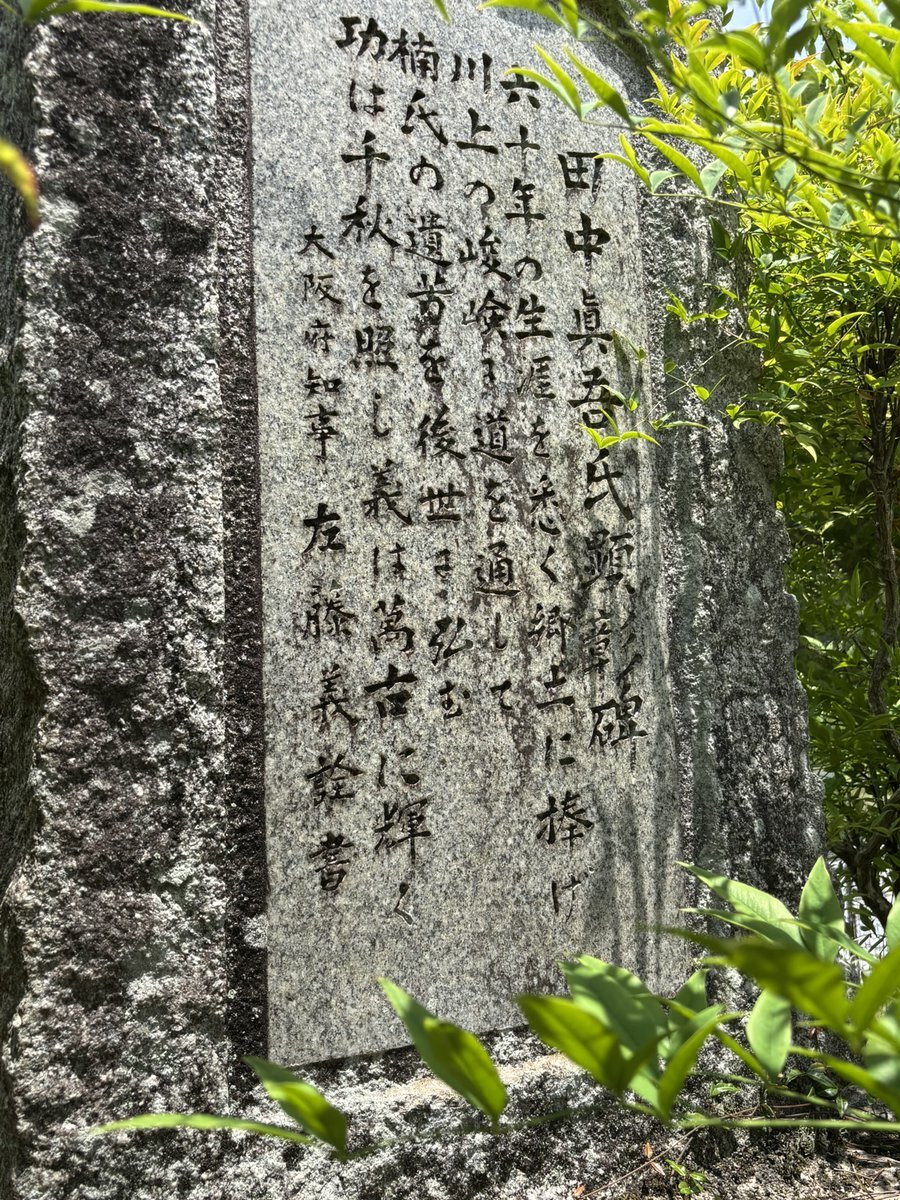 田中眞吾氏顕彰碑
六十年の生涯を悉く郷土に捧げ
川上の峻険に道を通して
楠氏の遺昔を後世に弘む
功は千秋を照し義は萬古に輝く
大阪府知事 左藤義詮書